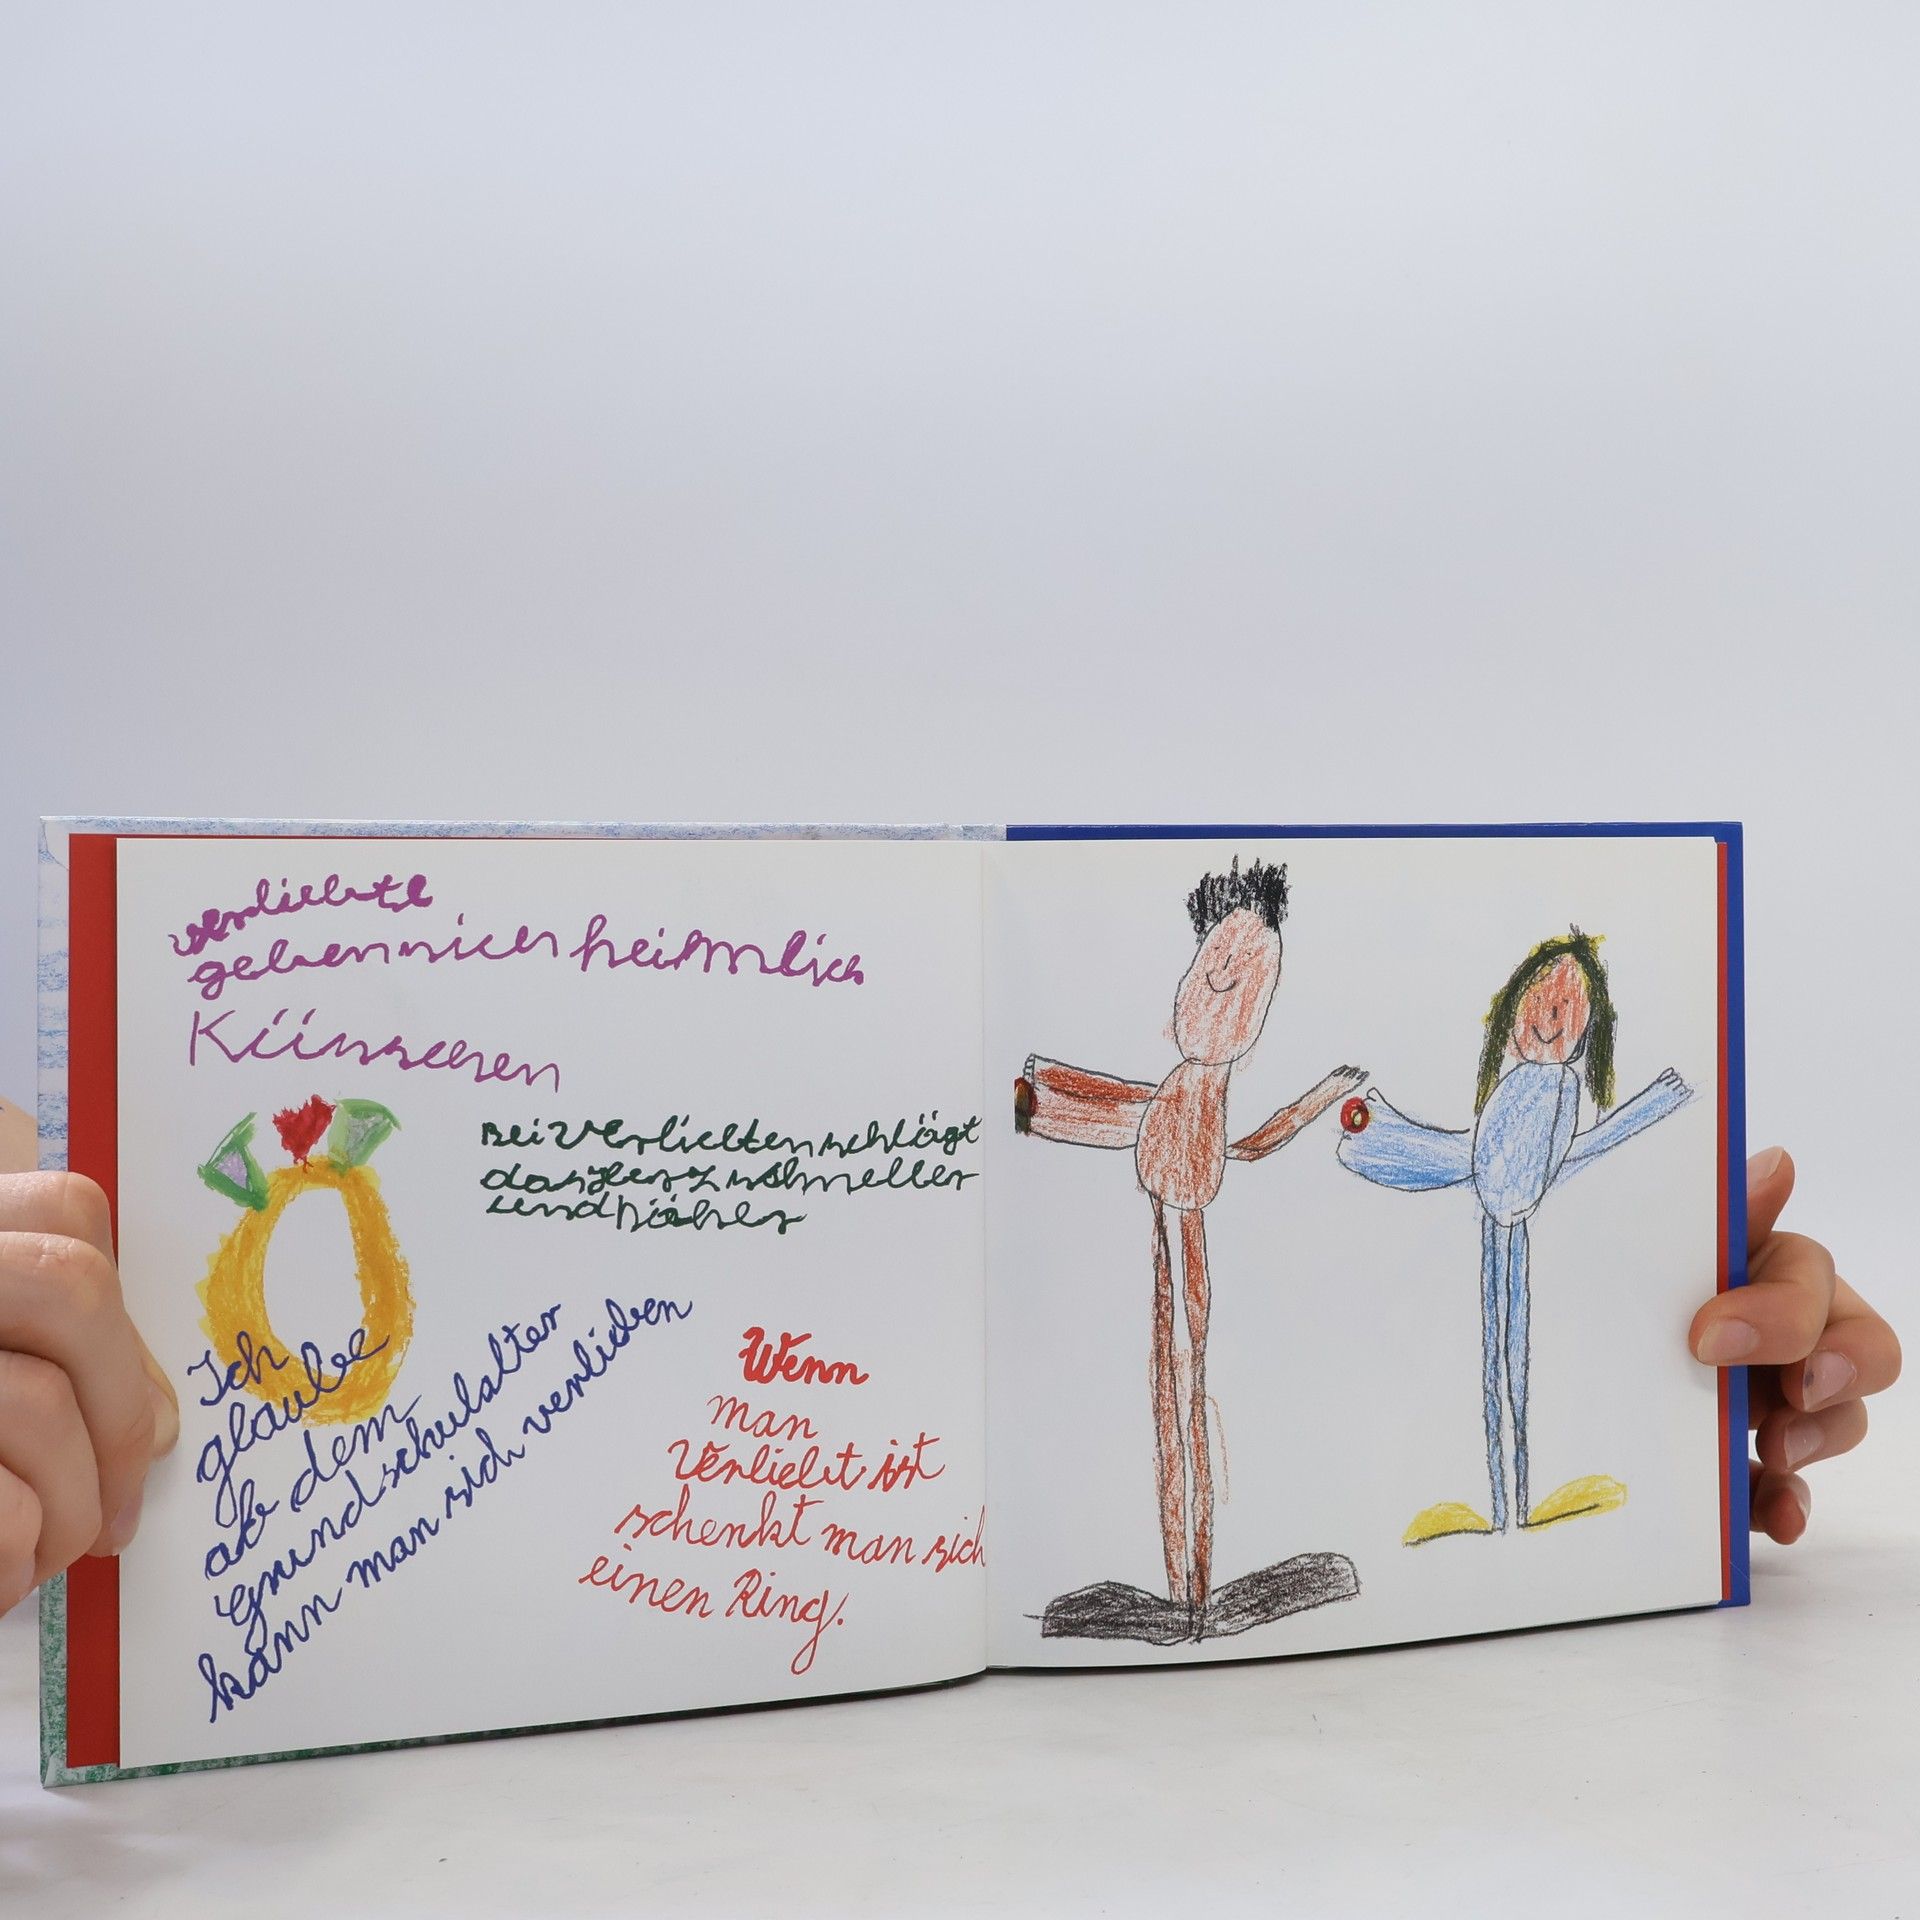 verliebte
geben sich heimlich
Küsschen
Bei Verliebten schlägt
das Herz schneller
und höher
Ich
glaube
ab dem
Grundschulalter
kann man sich verlieben
Wenn
man
Verliebt ist
schenkt man sich
einen Ring.